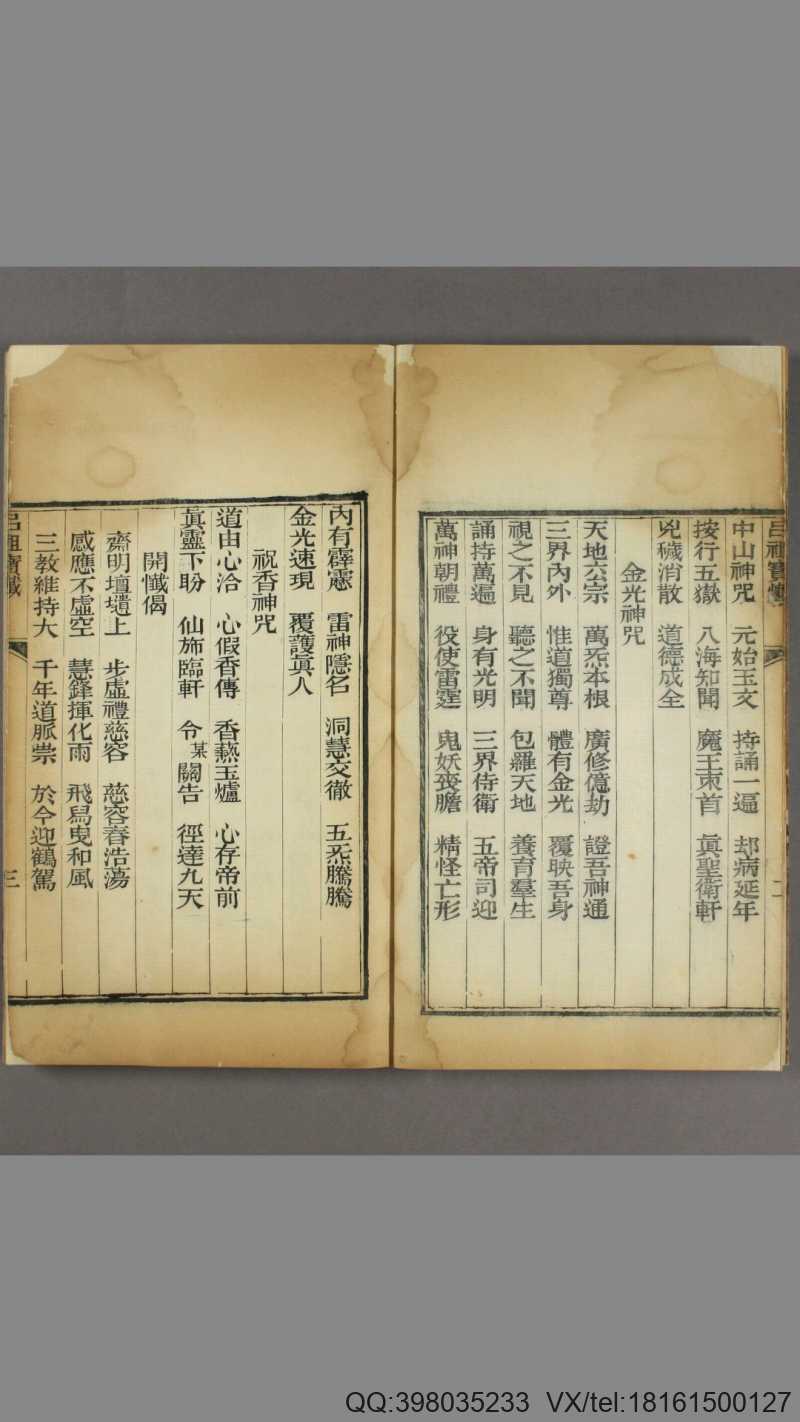 呂祖寶懺
二
中山神咒　元始玉文　持誦一遍　却病延年
按行五嶽　八海知聞　魔王束首　眞聖衛軒
兇穢消散　道德成全
金光神咒
天地公宗　萬炁本根　廣修億劫　證吾神通
三界內外　惟道獨尊　體有金光　覆映吾身
視之不見　聽之不聞　包羅天地　養育羣生
誦持萬遍　身有光明　三界侍衛　五帝司迎
萬神朝禮　役使雷霆　鬼妖喪膽　精怪亡形
內有霹靂　雷神隱名　洞慧交徹　五炁騰騰
金光速現　覆護眞人
祝香神咒
道由心洽　心假香傳　香爇玉爐　心存帝前
眞靈下盼　仙斾臨軒　令某關告　徑達九天
開懺偈
齋明壇墠上　步虛禮慈容　慈容春浩蕩
感應不虛空　慧鋒揮化雨　飛舄曳和風
三教維持大　千年道脈崇　於今迎鶴駕
呂祖寶懺
三
QQ:398035233 VX/tel:18161500127